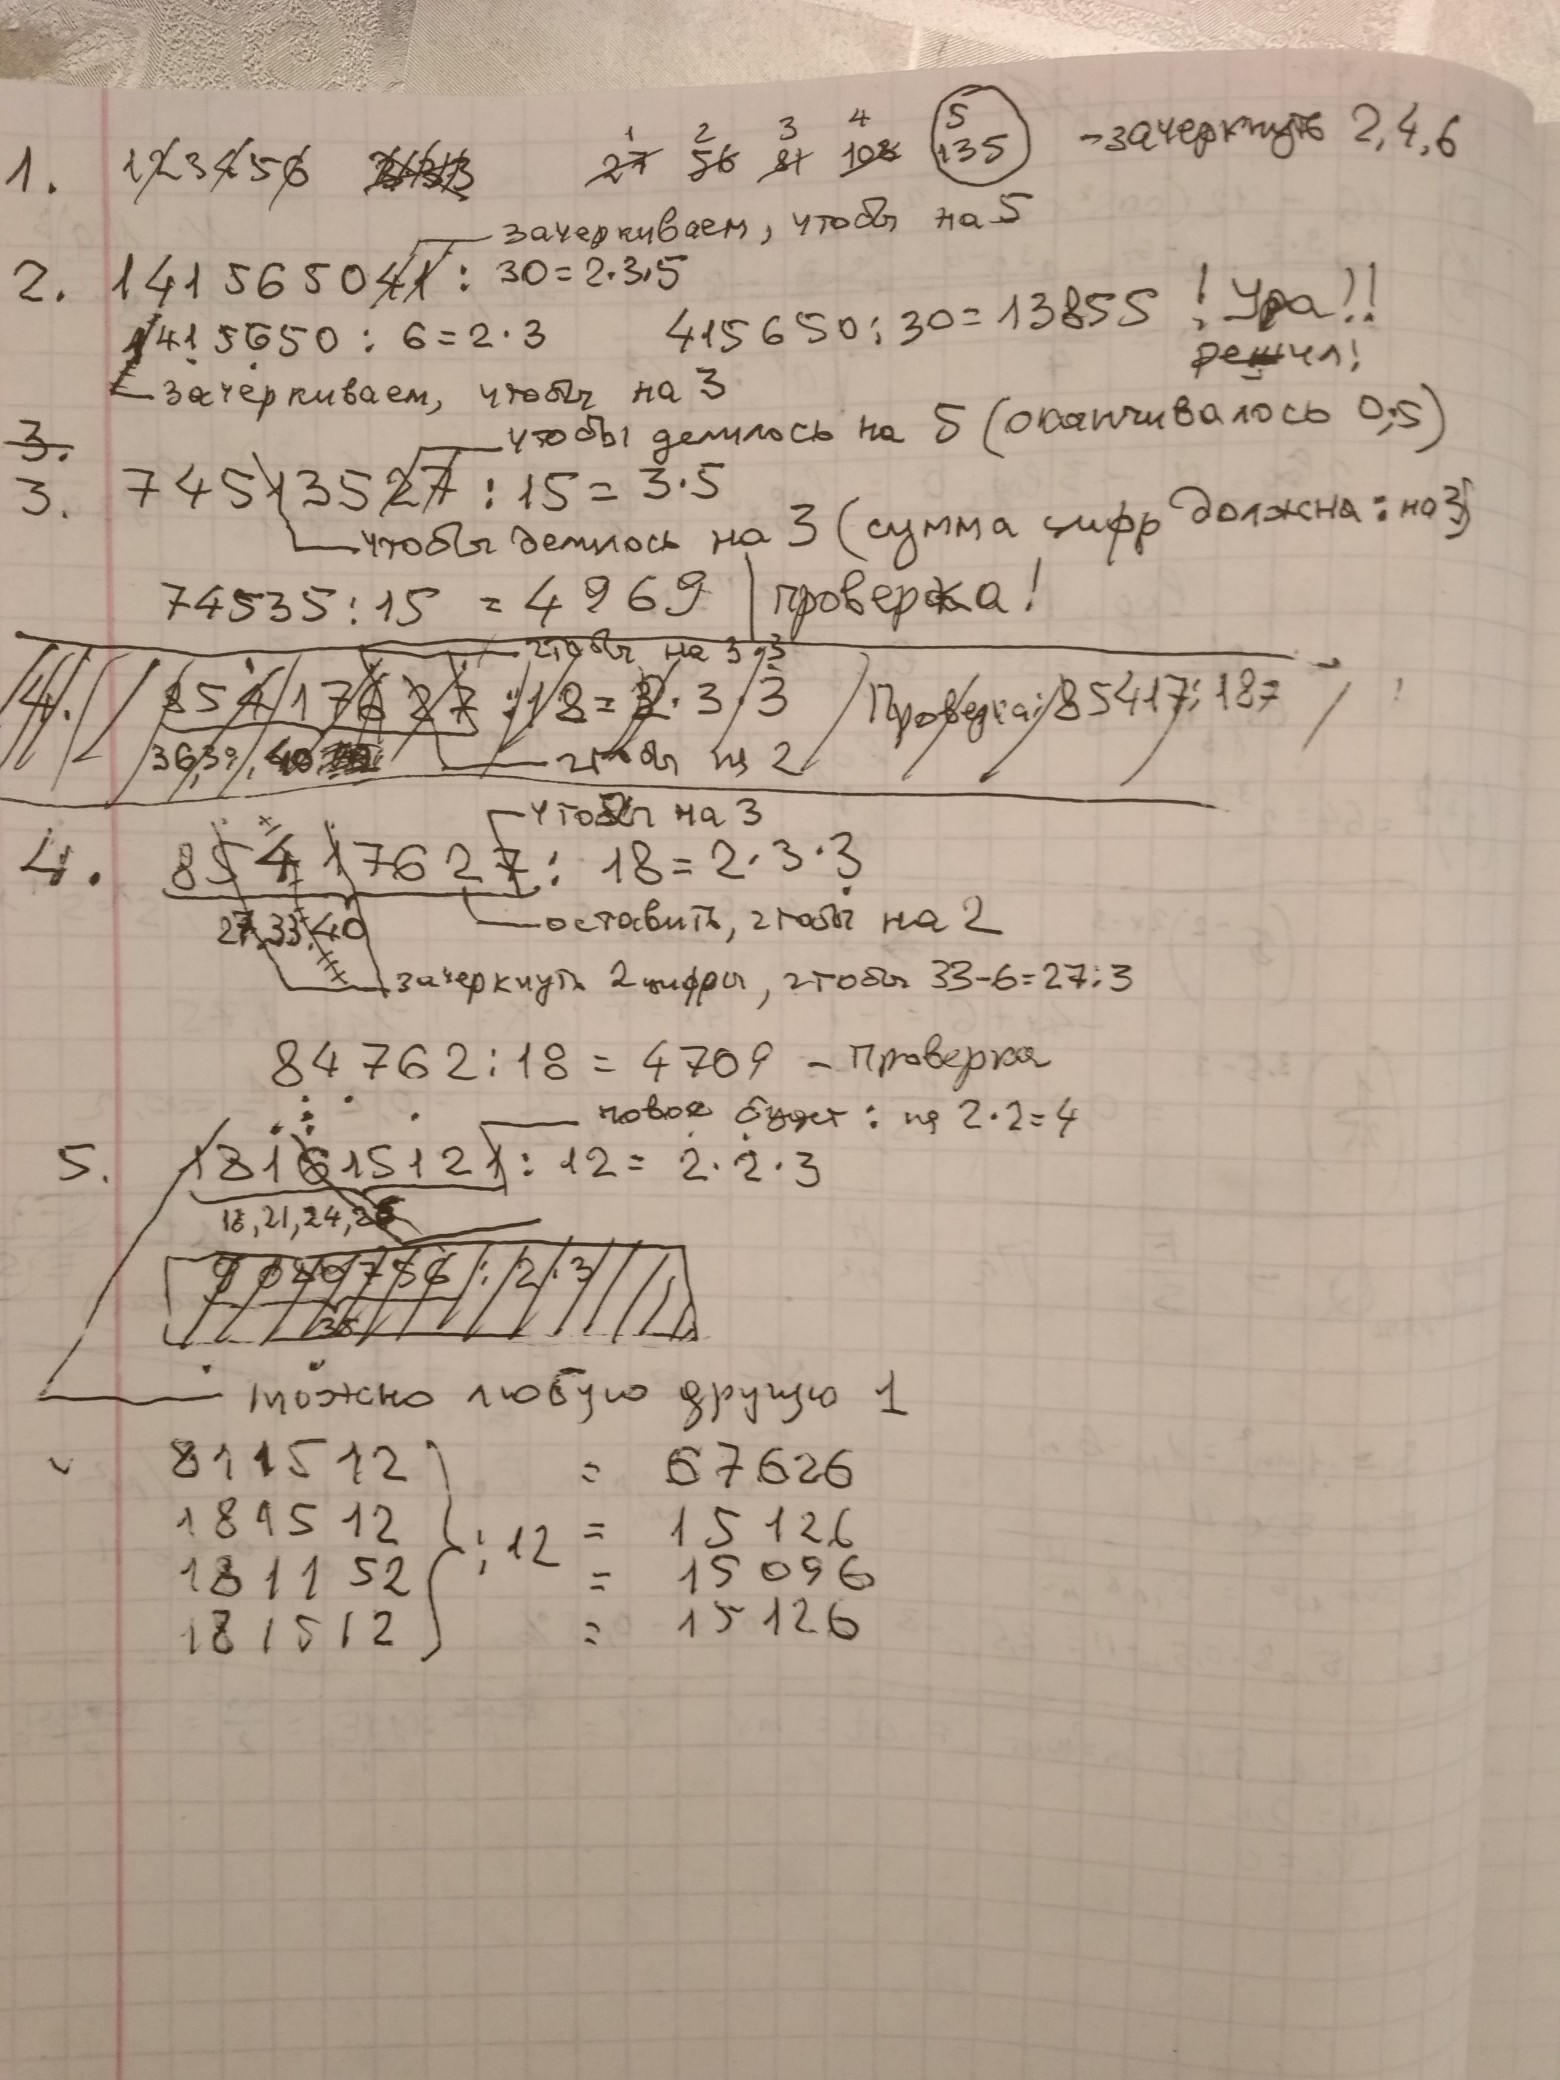 1. 123456 1 2 3 4 5
27 56 81 108 135 - зачеркнуть 2,4,6
зачеркиваем, чтобы на 5
2. 141565041 : 30 = 2·3·5
1415650 : 6 = 2·3 415650 : 30 = 13855 ! Ура!!
решил!
зачеркиваем, чтобы на 3
3. чтобы делилось на 5 (оканчивалось 0,5)
3. 74513527 : 15 = 3·5
чтобы делилось на 3 (сумма цифр должна : на 3)
74535 : 15 = 4969 | проверка!
чтобы на 3·3
4. 85417627 : 18 = 2·3·3 Проверка: 85417 : 18 =
36, 39, 40 чтобы на 2
чтобы на 3
4. 85417627 : 18 = 2·3·3
27, 33, 40 оставить, чтобы на 2
зачеркнуть 2 цифры, чтобы 33-6=27:3
84762 : 18 = 4709 - Проверка
новое будет : на 2·2=4
5. 181615121 : 12 = 2·2·3
18, 21, 24,
: 2·3
можно любую другую 1
811512 = 67626
181512 = 15126
: 12
181152 = 15096
181512 = 15126